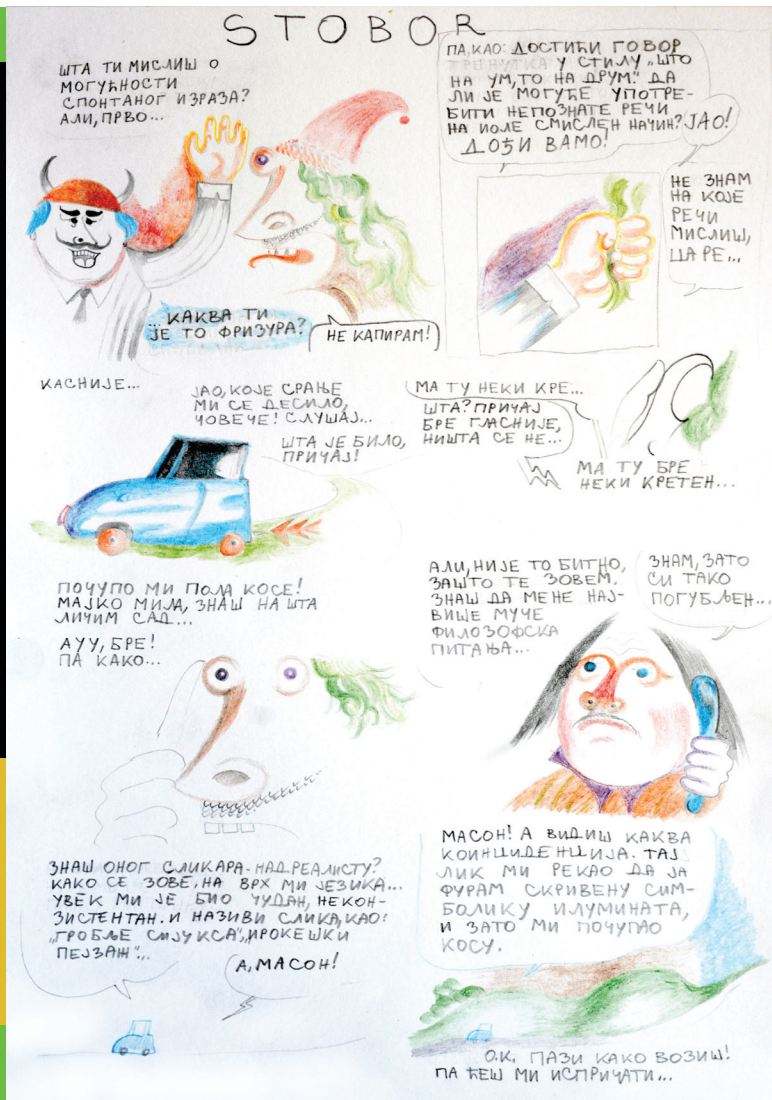 STOBOR
ШТА ТИ МИСЛИШ О
МОГУЋНОСТИ
СПОНТАНОГ ИЗРАЗА?
АЛИ, ПРВО...
ПА, КАО: ДОСТИЋИ ГОВОР
ТРЕНУТКА У СТИЛУ „ШТО
НА УМ, ТО НА ДРУМ.” ДА
ЛИ ЈЕ МОГУЋЕ УПОТРЕ-
БИТИ НЕПОЗНАТЕ РЕЧИ
НА ИОЛЕ СМИСЛЕН НАЧИН? ЈАО!
ДОЂИ ВАМО!
НЕ ЗНАМ
НА КОЈЕ
РЕЧИ
МИСЛИШ,
ЦАРЕ...
КАКВА ТИ
ЈЕ ТО ФРИЗУРА?
НЕ КАПИРАМ!
КАСНИЈЕ...
ЈАО, КОЈЕ СРАЊЕ
МИ СЕ ДЕСИЛО,
ЧОВЕЧЕ! СЛУШАЈ...
ШТА ЈЕ БИЛО,
ПРИЧАЈ!
МА ТУ НЕКИ КРЕ...
ШТА? ПРИЧАЈ
БРЕ ГЛАСНИЈЕ,
НИШТА СЕ НЕ...
МА ТУ БРЕ
НЕКИ КРЕТЕН...
ПОЧУПО МИ ПОЛА КОСЕ!
МАЈКО МИЛА, ЗНАШ НА ШТА
ЛИЧИМ САД...
АУУ, БРЕ!
ПА КАКО...
АЛИ, НИЈЕ ТО БИТНО,
ЗАШТО ТЕ ЗОВЕМ.
ЗНАШ ДА МЕНЕ НАЈ-
ВИШЕ МУЧЕ
ФИЛОЗОФСКА
ПИТАЊА...
ЗНАМ, ЗАТО
СИ ТАКО
ПОГУБЉЕН...
ЗНАШ ОНОГ СЛИКАРА-НАДРЕАЛИСТУ?
КАКО СЕ ЗОВЕ, НА ВРХ МИ ЈЕЗИКА...
УВЕК МИ ЈЕ БИО ЧУДАН, НЕКОН-
ЗИСТЕНТАН. И НАЗИВИ СЛИКА, КАО:
„ГРОБЉЕ СИЈУКСА”, „ИРОКЕШКИ
ПЕЈЗАЖ”...
А, МАСОН!
МАСОН! А ВИДИШ КАКВА
КОИНЦИДЕНЦИЈА. ТАЈ
ЛИК МИ РЕКАО ДА ЈА
ФУРАМ СКРИВЕНУ СИМ-
БОЛИКУ ИЛУМИНАТА,
И ЗАТО МИ ПОЧУПАО
КОСУ.
О.К. ПАЗИ КАКО ВОЗИШ!
ПА ЋЕШ МИ ИСПРИЧАТИ...